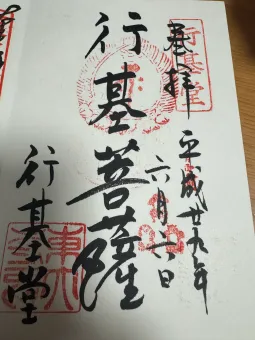 奉拝
行基堂
平成廿九年
六月六日
行基菩薩
行基堂